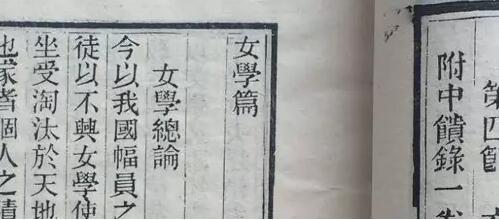 第四節
附中饋錄一
女學篇
女學總論
今以我國幅員之
徒以不興女學使
坐受淘汰於天地
也家者個人之積